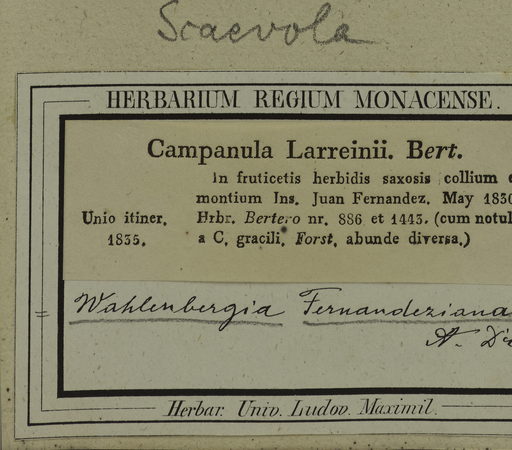 Scaevola
HERBARIUM REGIUM MONACENSE.
Campanula Larreinii. Bert.
In fruticetis herbidis saxosis collium
montium Ins. Juan Fernandez. May 1830
Unio itiner. Hrbr. Bertero nr. 886 et 1443. (cum notul
1835. a C. gracili, Forst, abunde diversa.)
= Wahlenbergia Fernandeziana
A. D
Herbar. Univ. Ludov. Maximil.